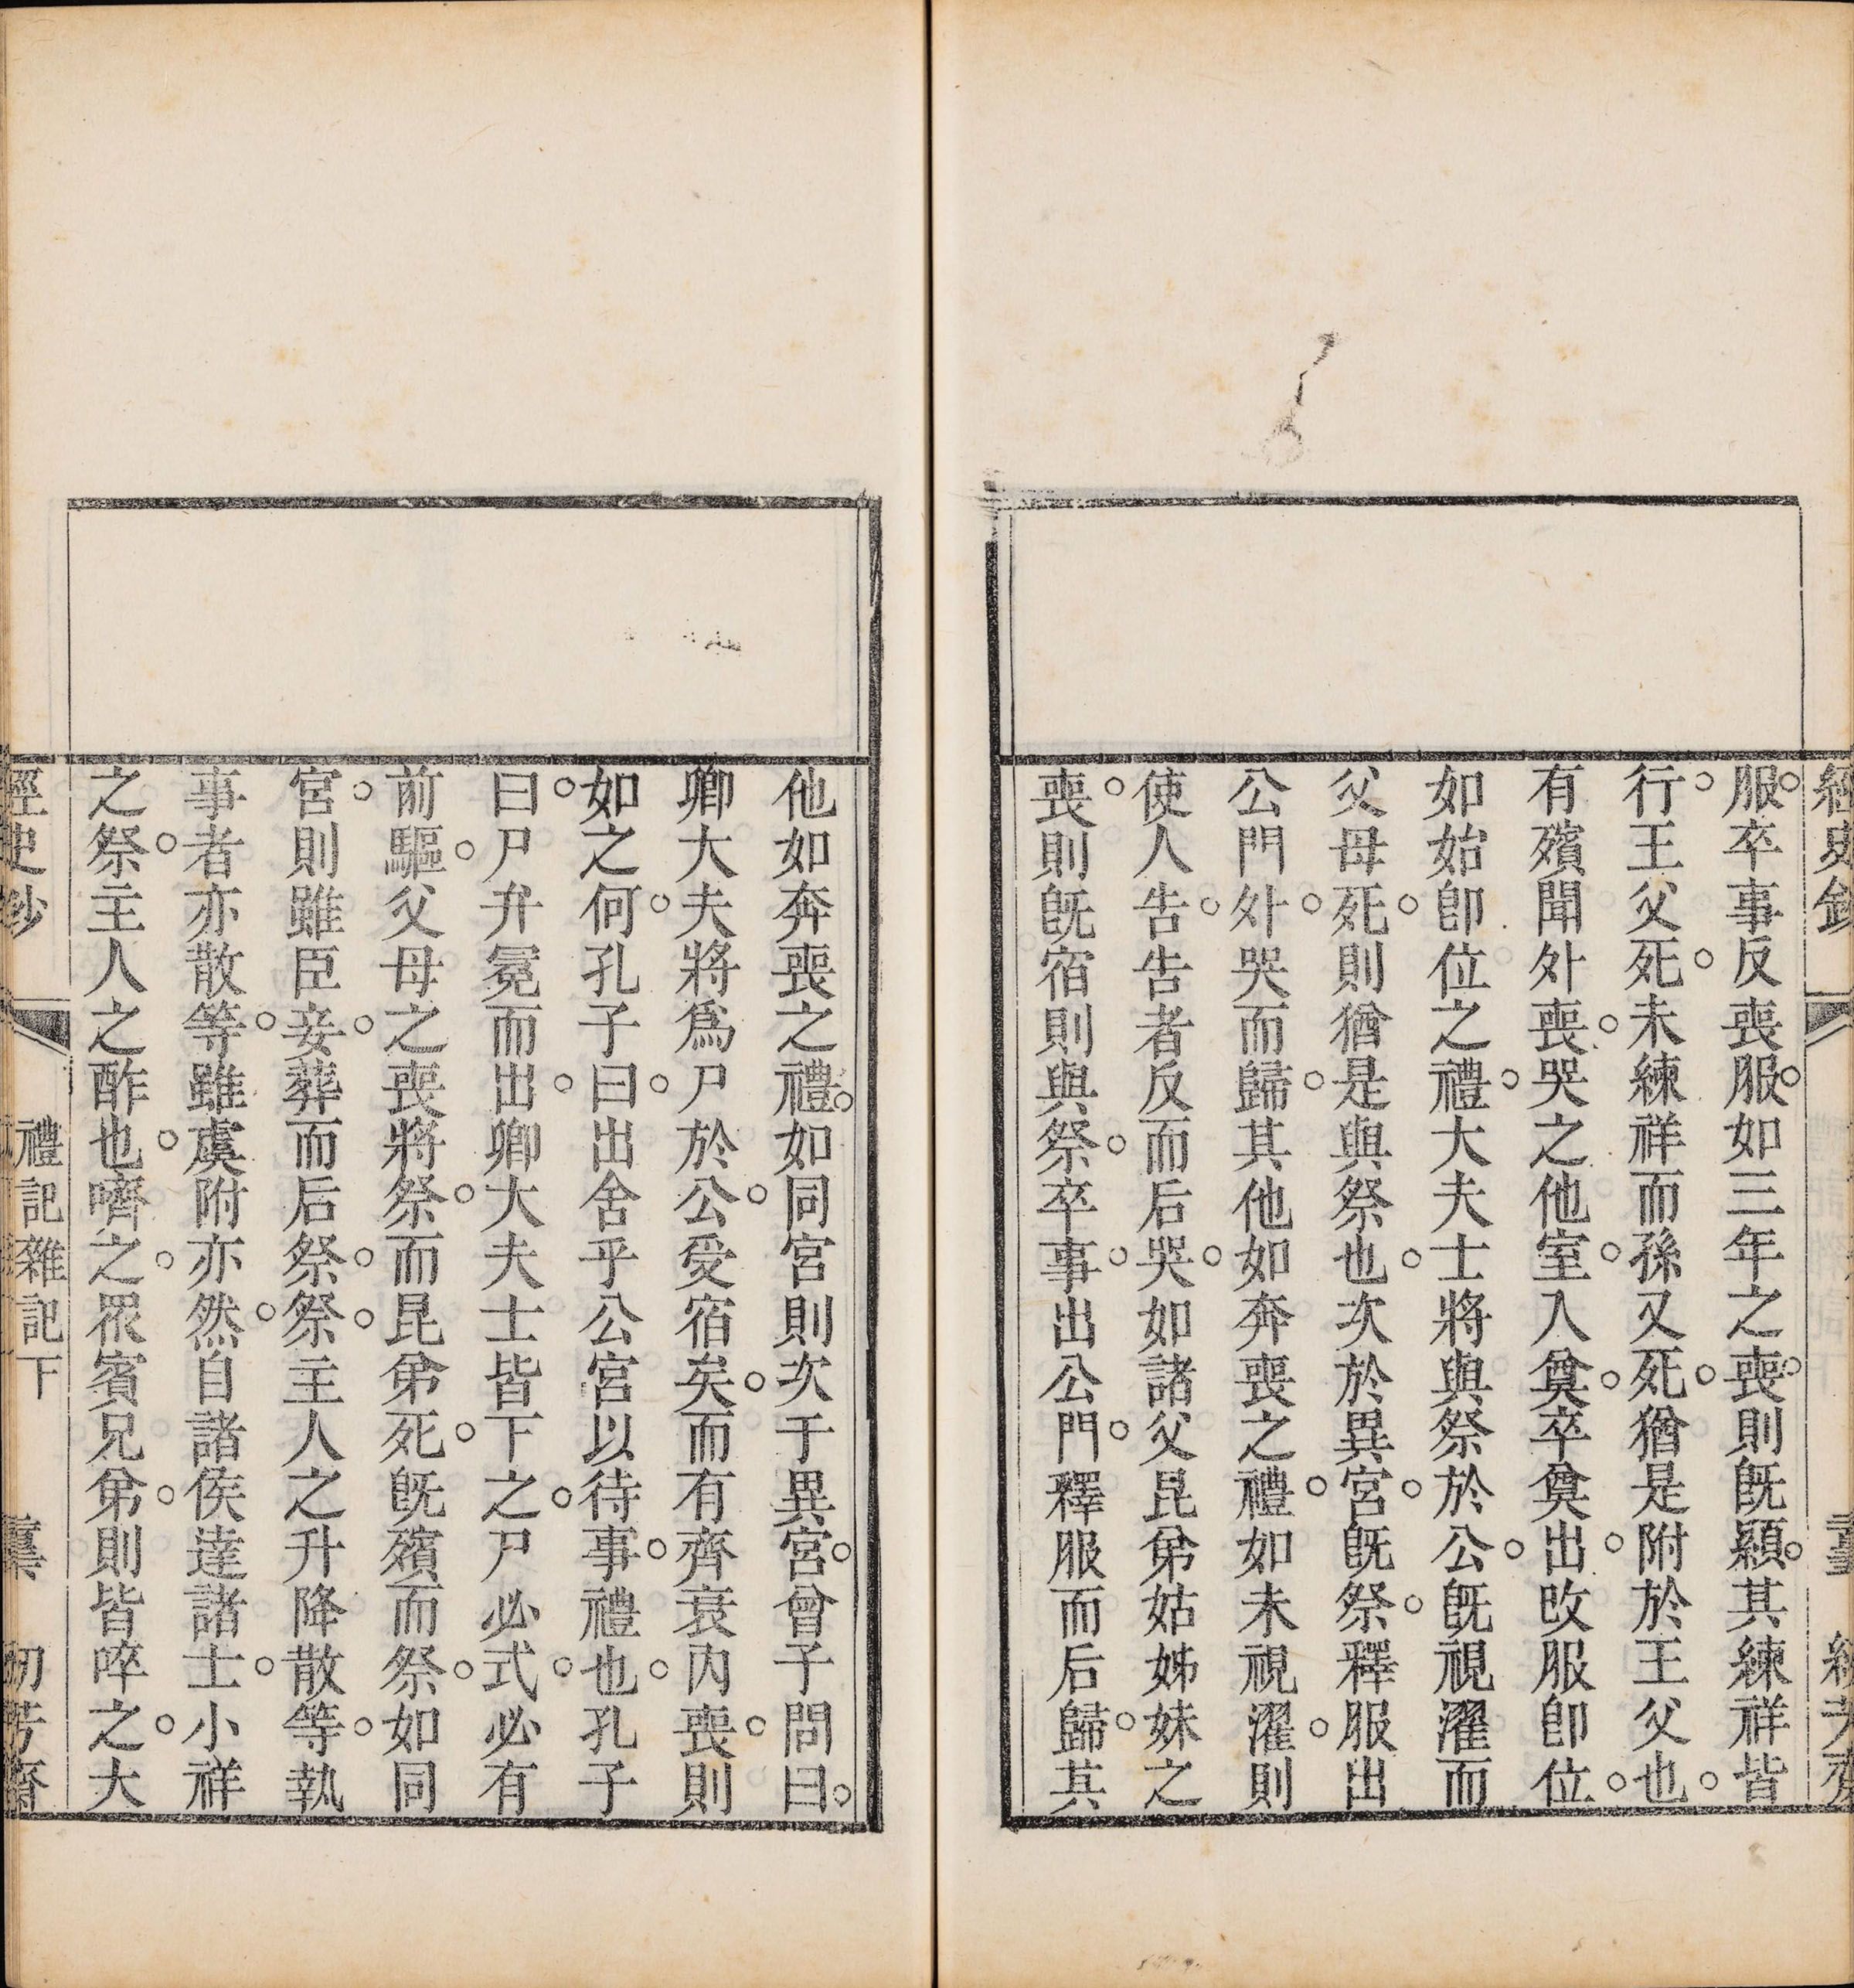 服卒事反喪服如三年之喪則旣顈其練祥皆
行王父死未練祥而孫又死猶是附於王父也
有殯聞外喪哭之他室入奠卒奠出改服卽位
如始卽位之禮大夫士將與祭於公旣視濯而
父母死則猶是與祭也次於異宮旣祭釋服出
公門外哭而歸其他如奔喪之禮如未視濯則
使人告告者反而后哭如諸父昆弟姑姊妹之
喪則旣宿則與祭卒事出公門釋服而后歸其
他如奔喪之禮如同宮則次于異宮曾子問曰
卿大夫將爲尸於公受宿矣而有齊衰內喪則
如之何孔子曰出舍乎公宮以待事禮也孔子
曰尸弁冕而出卿大夫士皆下之尸必式必有
前驅父母之喪將祭而昆弟死旣殯而祭如同
宮則雖臣妾葬而后祭祭主人之升降散等執
事者亦散等雖虞附亦然自諸侯達諸士小祥
之祭主人之酢也嚌之眾賓兄弟則皆啐之大
經史鈔 禮記雜記下